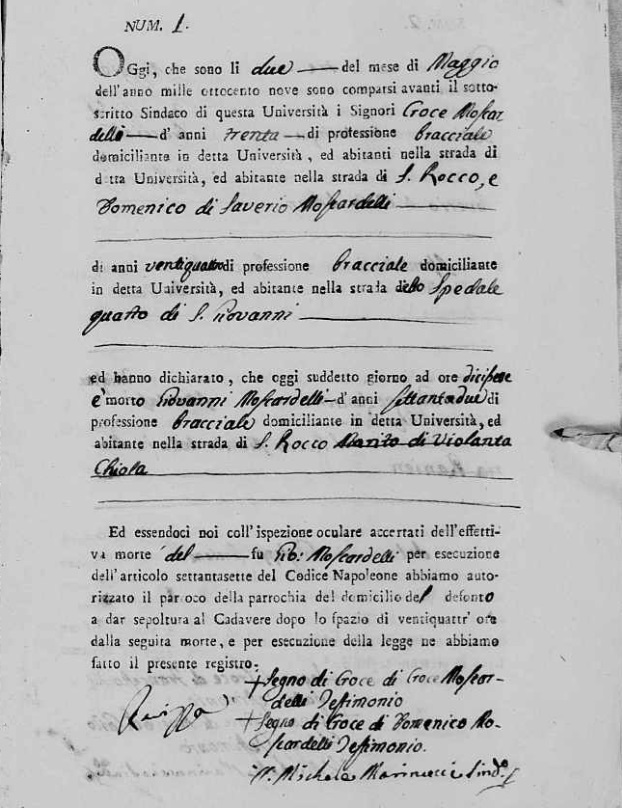 NUM. 1.
OGgi, che sono li due del mese di Maggio
dell'anno mille ottocento nove sono comparsi avanti il sotto-
scritto Sindaco di questa Università i Signori Croce Moscar
delli d'anni trenta di professione bracciale
domiciliante in detta Università, ed abitanti nella strada di
detta Università, ed abitante nella strada di S. Rocco, e
Domenico di Saverio Moscardelli
di anni ventiquattro di professione bracciale domiciliante
in detta Università, ed abitante nella strada dello Spedale
quarto di S. Giovanni
ed hanno dichiarato, che oggi suddetto giorno ad ore
è morto Giovanni Moscardelli d'anni settantadue di
professione bracciale domiciliante in detta Università, ed
abitante nella strada di S. Rocco Marito di Violanta
Chiola
Ed essendoci noi coll'ispezione oculare accertati dell'effetti-
va morte del fu Gio: Moscardelli per esecuzione
dell'articolo settantasette del Codice Napoleone abbiamo auto-
rizzato il paroco della parrochia del domicilio del defonto
a dar sepoltura al Cadavere dopo lo spazio di ventiquattr'ore
dalla seguita morte, e per esecuzione della legge ne abbiamo
fatto il presente registro.
+ Segno di Croce di Croce Moscar-
delli Testimonio
+ Segno di Croce di Domenico Mo-
scardelli Testimonio.
Michele Marinucci Sind.